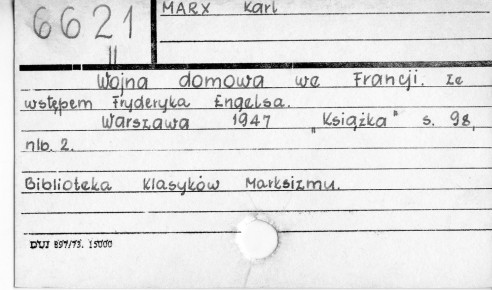 6621
MARX Karl
II
Wojna domowa we Francji. Ze
wstępem Fryderyka Engelsa.
Warszawa 1947 "Książka" s. 98,
nlb. 2.
Biblioteka Klasyków Marksizmu.
DUJ 897/73. 15000